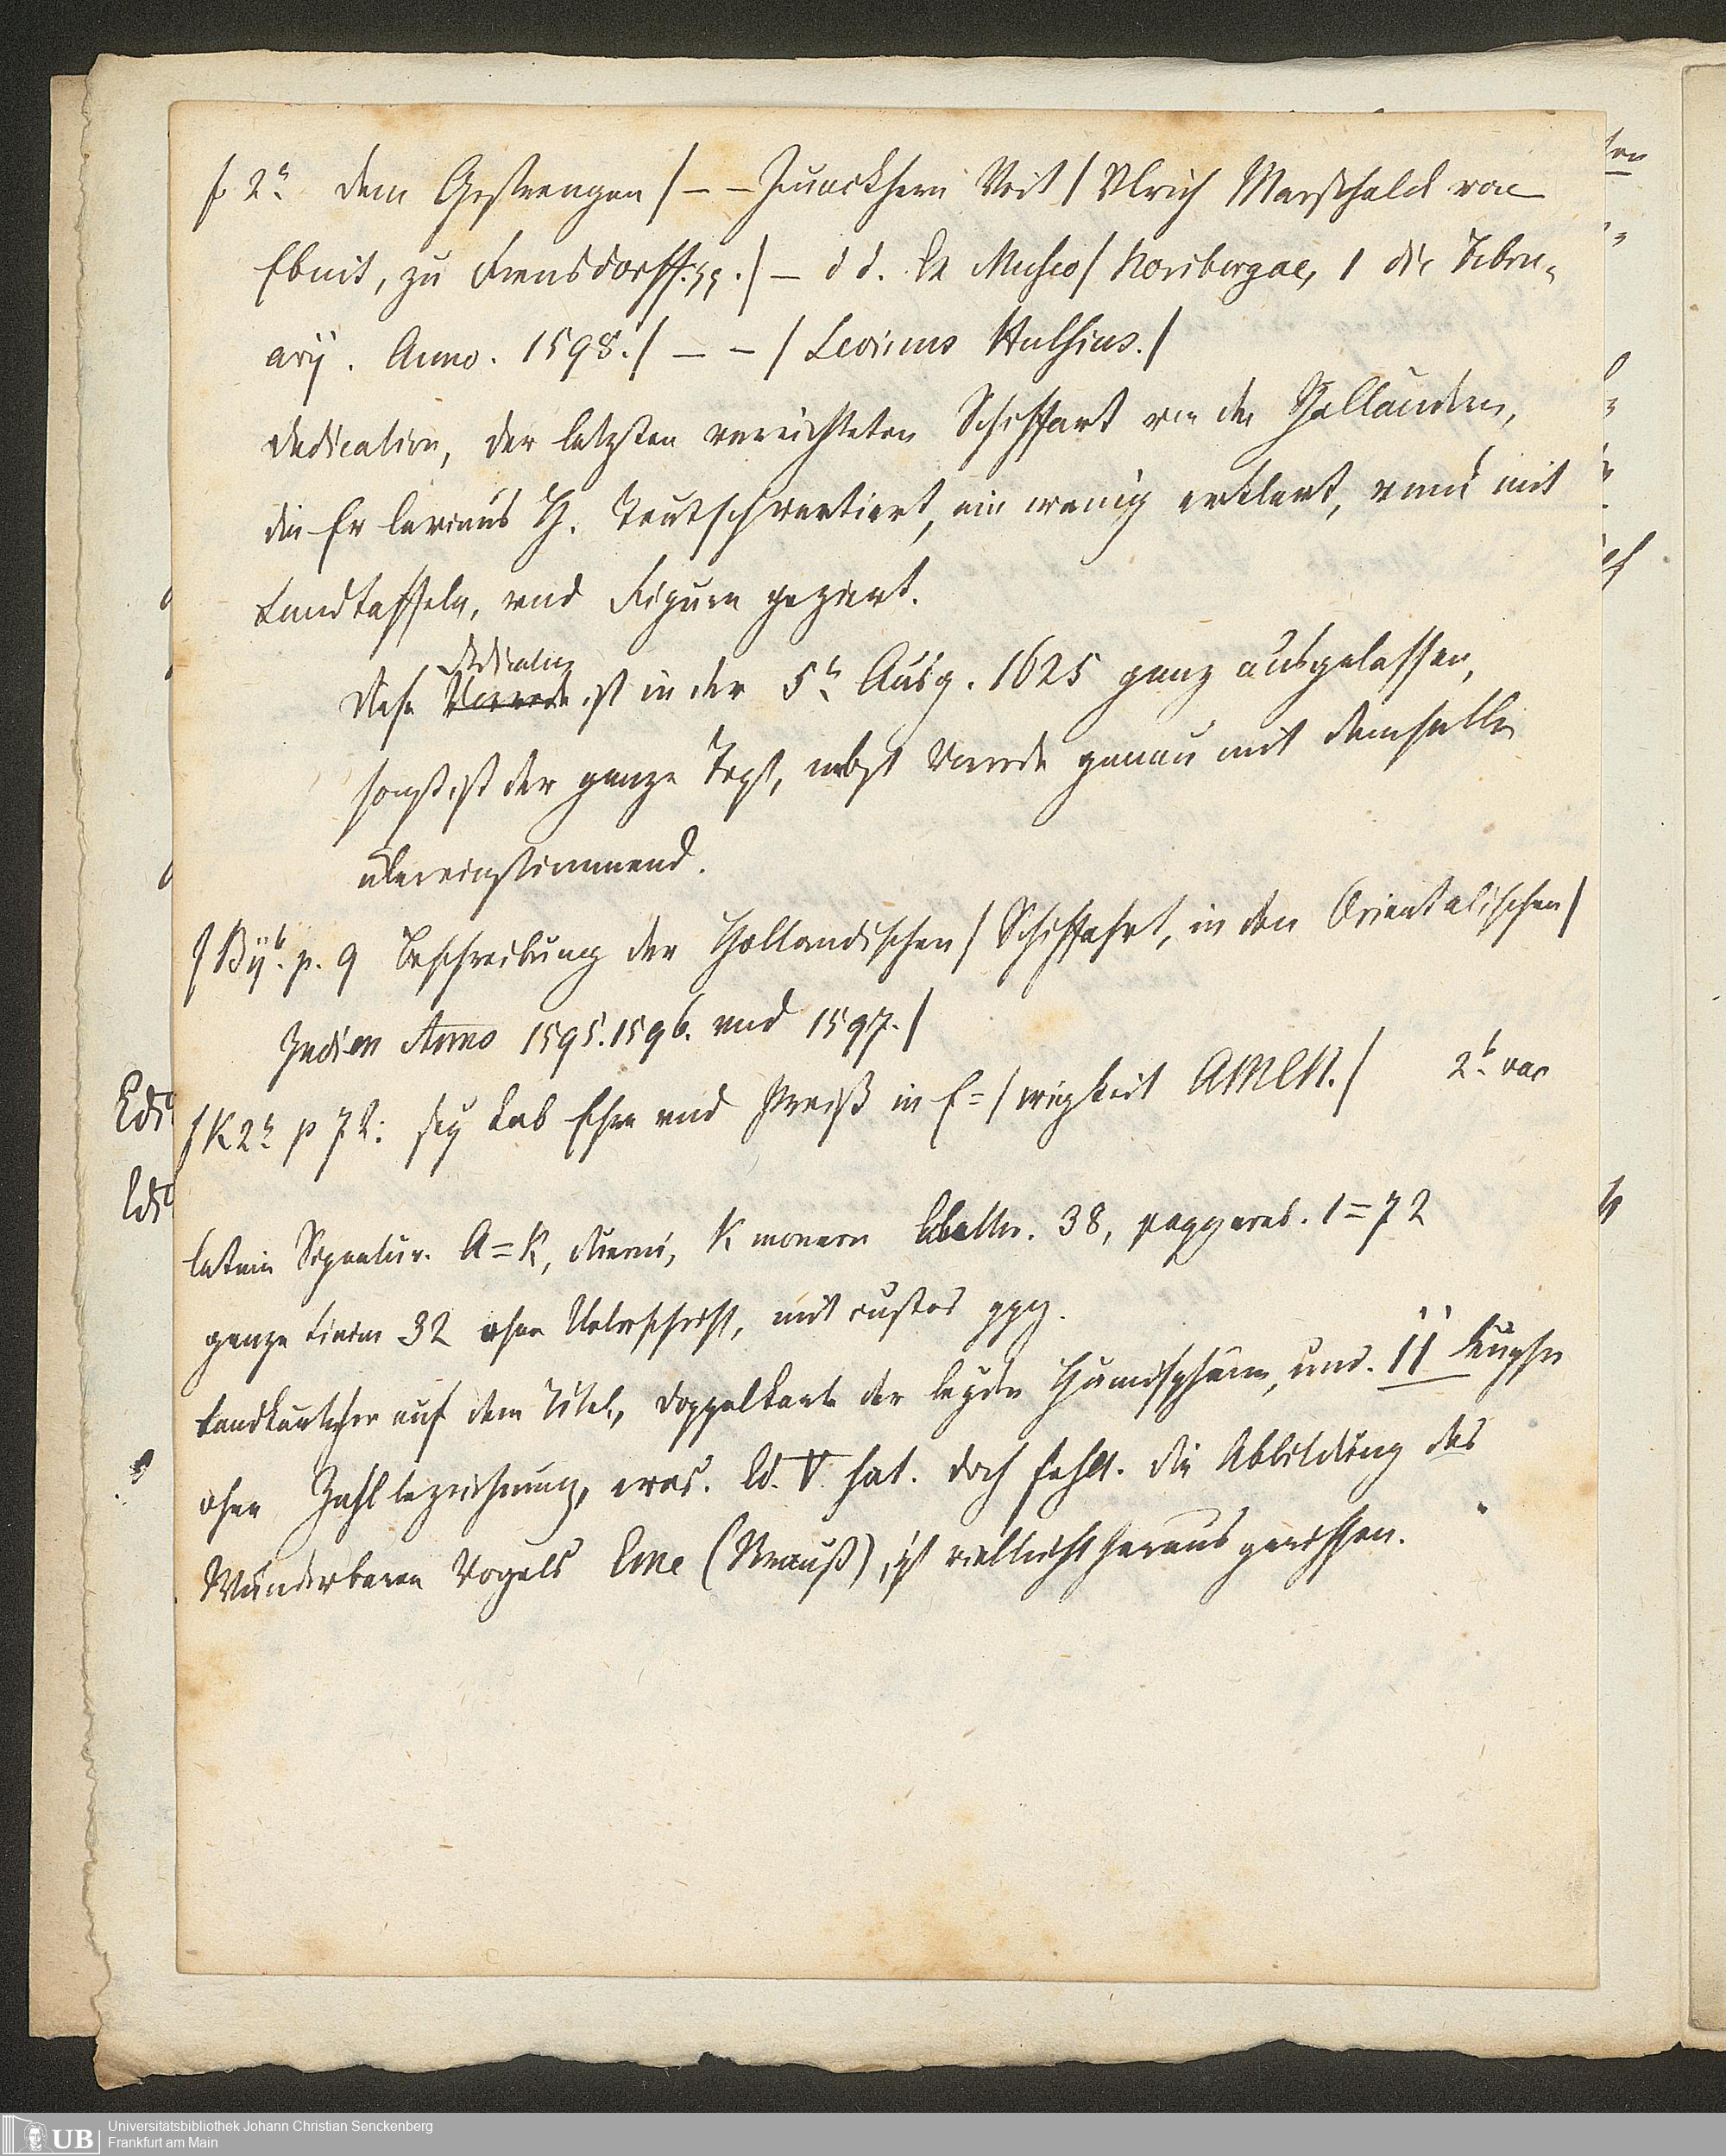 f 2a dem Gestrengen / – – Junckhern Veit / Ulrich Marschalck von
Ebnit, zu Frensdorff. zc. / – dd. Ex Museo / Noribergae, 1 die Febru-
arij. Anno. 1598. / – – / Levinus Hulsius. /
Dedication, der letzten verrichteten Schiffart von den Holländern,
die Er Levinus H. Teutsch vertiert, ein wenig erklert, vnnd mit
Landtaffeln, vnd Figuren geziert.
Dedication
Diese Vorrede ist in der 5n Ausg. 1625 ganz ausgelassen,
sonst ist der ganze Text, nebst Vorrede genau mit demselben
übereinstimmend.
f Bijb. p. 9 Beschreibung der Hollandischen / Schiffahrt, in den Orientalischen /
Indien Anno 1595. 1596. vnd 1597. /
f K2a p 72: sey Lob Ehre vnd Preiß in E= / wigkeit AMEN. / 2b vac
latein Signatur. A=K, K 38, 1=72
ganze Linien 32 ohne Ueberschrift, mit custos
Landkärtchen auf dem Titel, Doppelkarte der beyden Hemisphären, und. 11 Kupfer
ohne Zahlbezeichnung, Ed. V. hat. doch fehlt. die Abbildung des
Wunderbaren Vogels Eme (Strauß), ist vielleicht herausgerissen.
Edi
Edi
UB Universitätsbibliothek Johann Christian Senckenberg
Frankfurt am Main